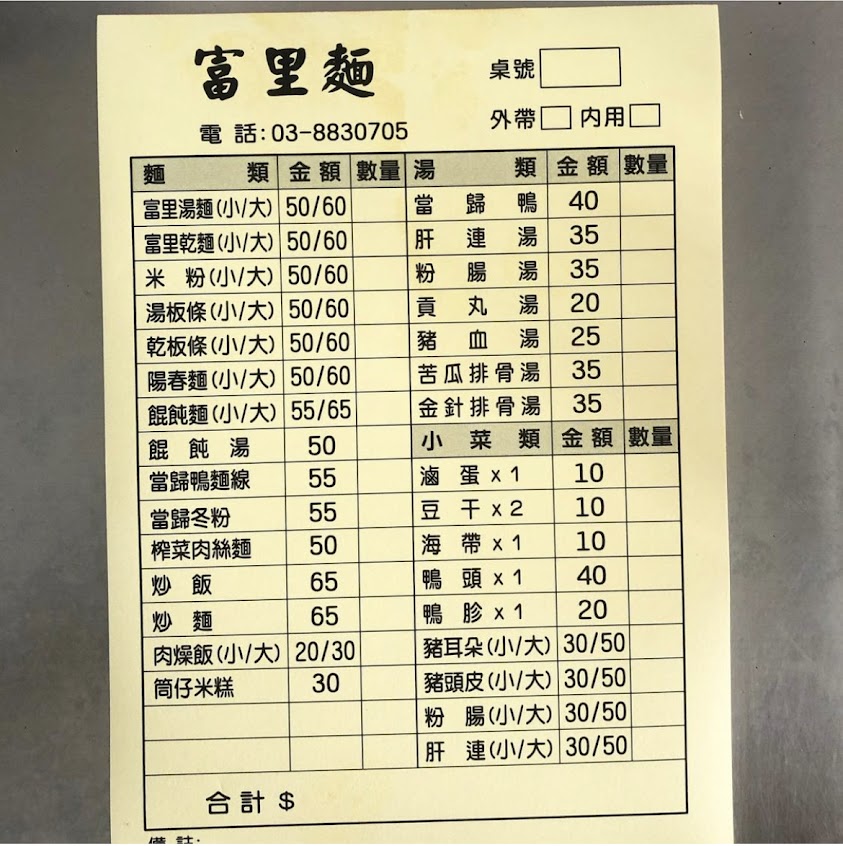 富里麵
桌號
外帶 內用
電話:03-8830705
麵類 金額 數量
富里湯麵(小/大) 50/60
富里乾麵(小/大) 50/60
米粉(小/大) 50/60
湯板條(小/大) 50/60
乾板條(小/大) 50/60
陽春麵(小/大) 50/60
餛飩麵(小/大) 55/65
餛飩湯 50
當歸鴨麵線 55
當歸冬粉 55
榨菜肉絲麵 50
炒飯 65
炒麵 65
肉燥飯(小/大) 20/30
筒仔米糕 30
湯類 金額 數量
當歸鴨 40
肝連湯 35
粉腸湯 35
貢丸湯 20
豬血湯 25
苦瓜排骨湯 35
金針排骨湯 35
小菜類 金額 數量
滷蛋x1 10
豆干x2 10
海帶x1 10
鴨頭x1 40
鴨胗x1 20
豬耳朵(小/大) 30/50
豬頭皮(小/大) 30/50
粉腸(小/大) 30/50
肝連(小/大) 30/50
合計 $
備註: